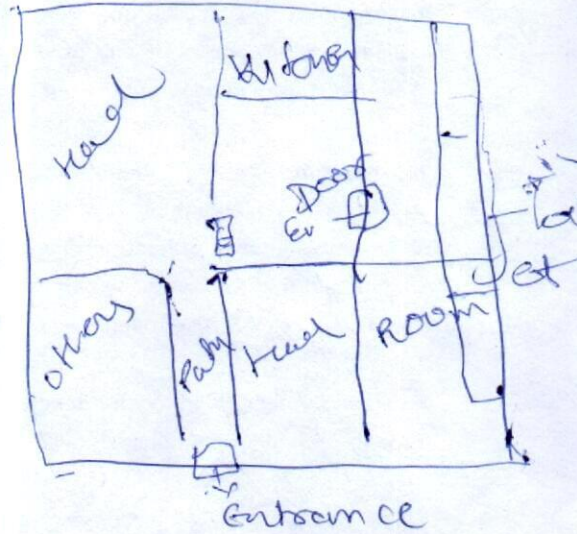 Kitchen
Head
Door
Others
Path
Head
Room
Entrance